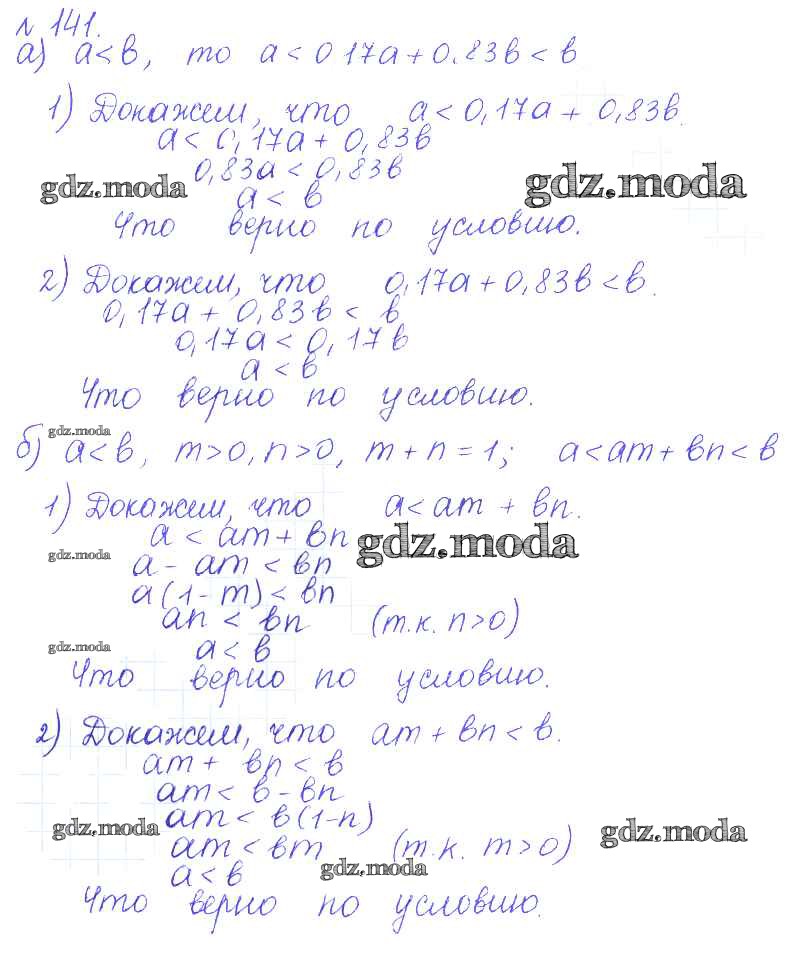 № 141.
а) a < b, то a < 0,17a + 0,83b < b
1) Докажем, что a < 0,17a + 0,83b.
a < 0,17a + 0,83b
0,83a < 0,83b
gdz.moda
gdz.moda
a < b
Что верно по условию.
2) Докажем, что 0,17a + 0,83b < b.
0,17a + 0,83b < b
0,17a < 0,17b
a < b
Что верно по условию.
gdz.moda
б) a < b, m > 0, n > 0, m + n = 1; a < am + bn < b
1) Докажем, что a < am + bn.
a < am + bn
gdz.moda
gdz.moda
a - am < bn
a(1-m) < bn
an < bn (т.к. n > 0)
gdz.moda
a < b
Что верно по условию.
2) Докажем, что am + bn < b.
am + bn < b
am < b - bn
am < b(1-n)
gdz.moda
gdz.moda
am < bm (т.к. m > 0)
gdz.moda
a < b
Что верно по условию.